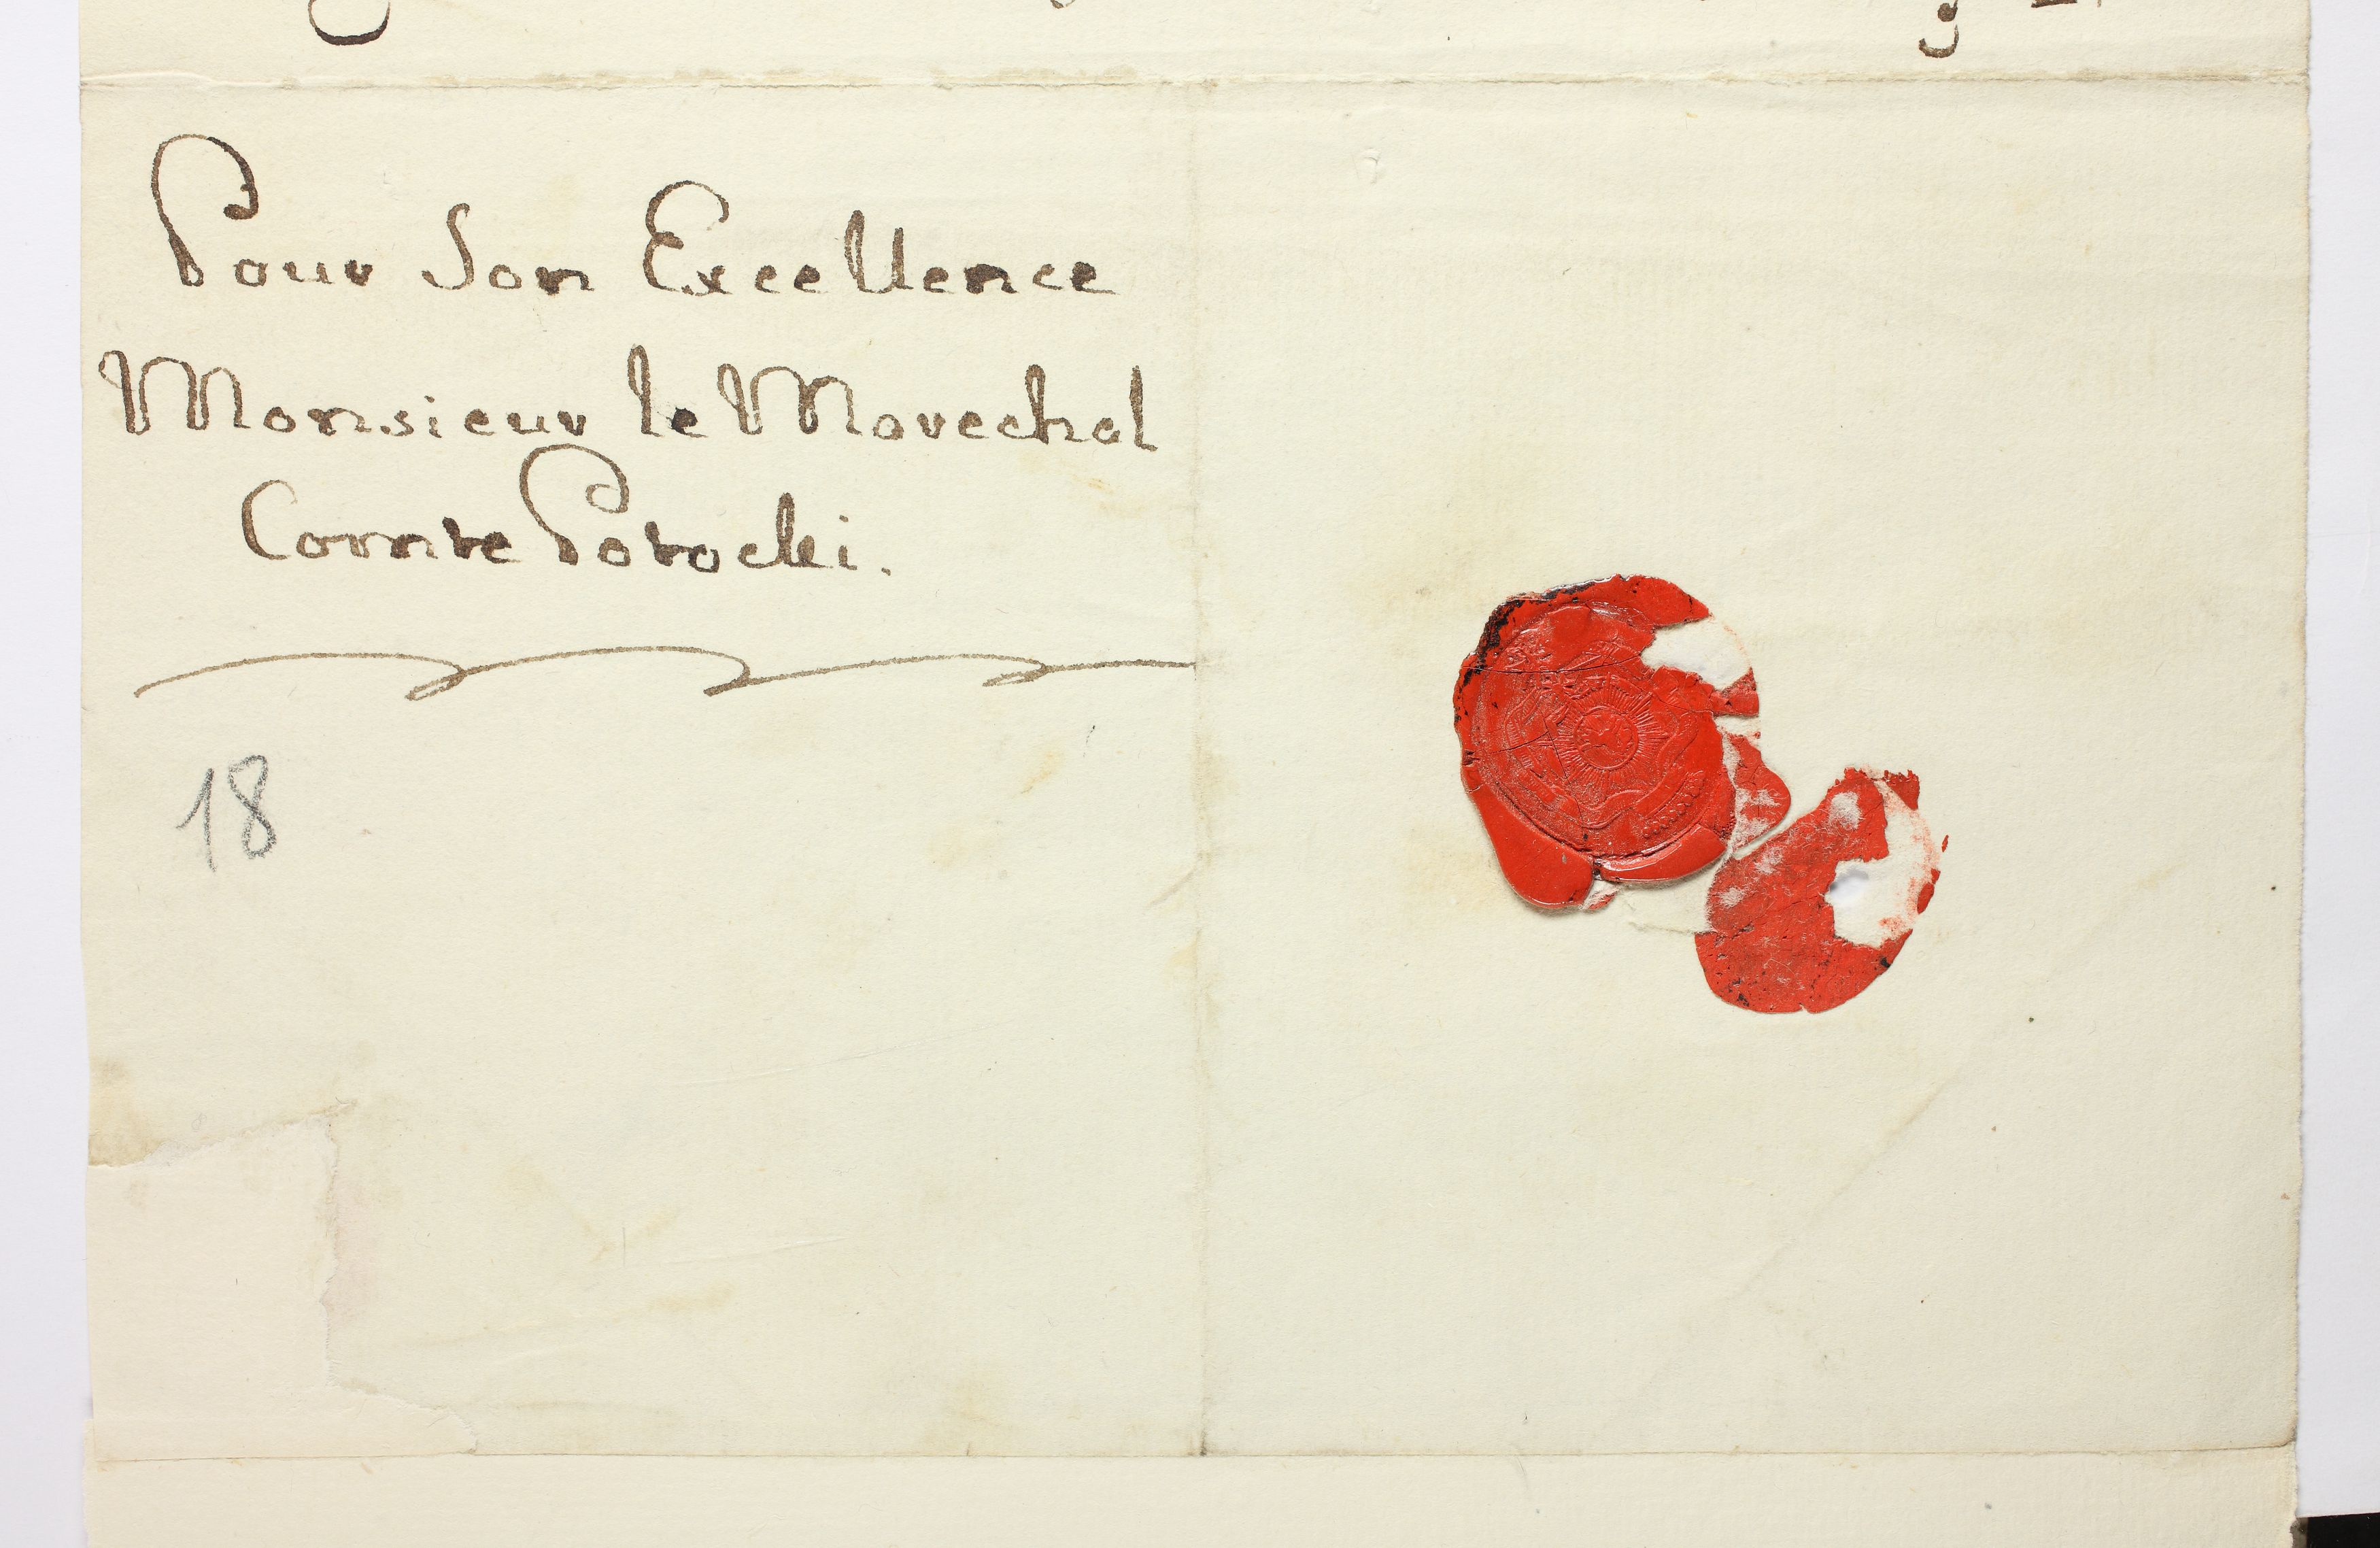 Pour Son Excellence
Monsieur le Marechal
Comte Potocki.
18